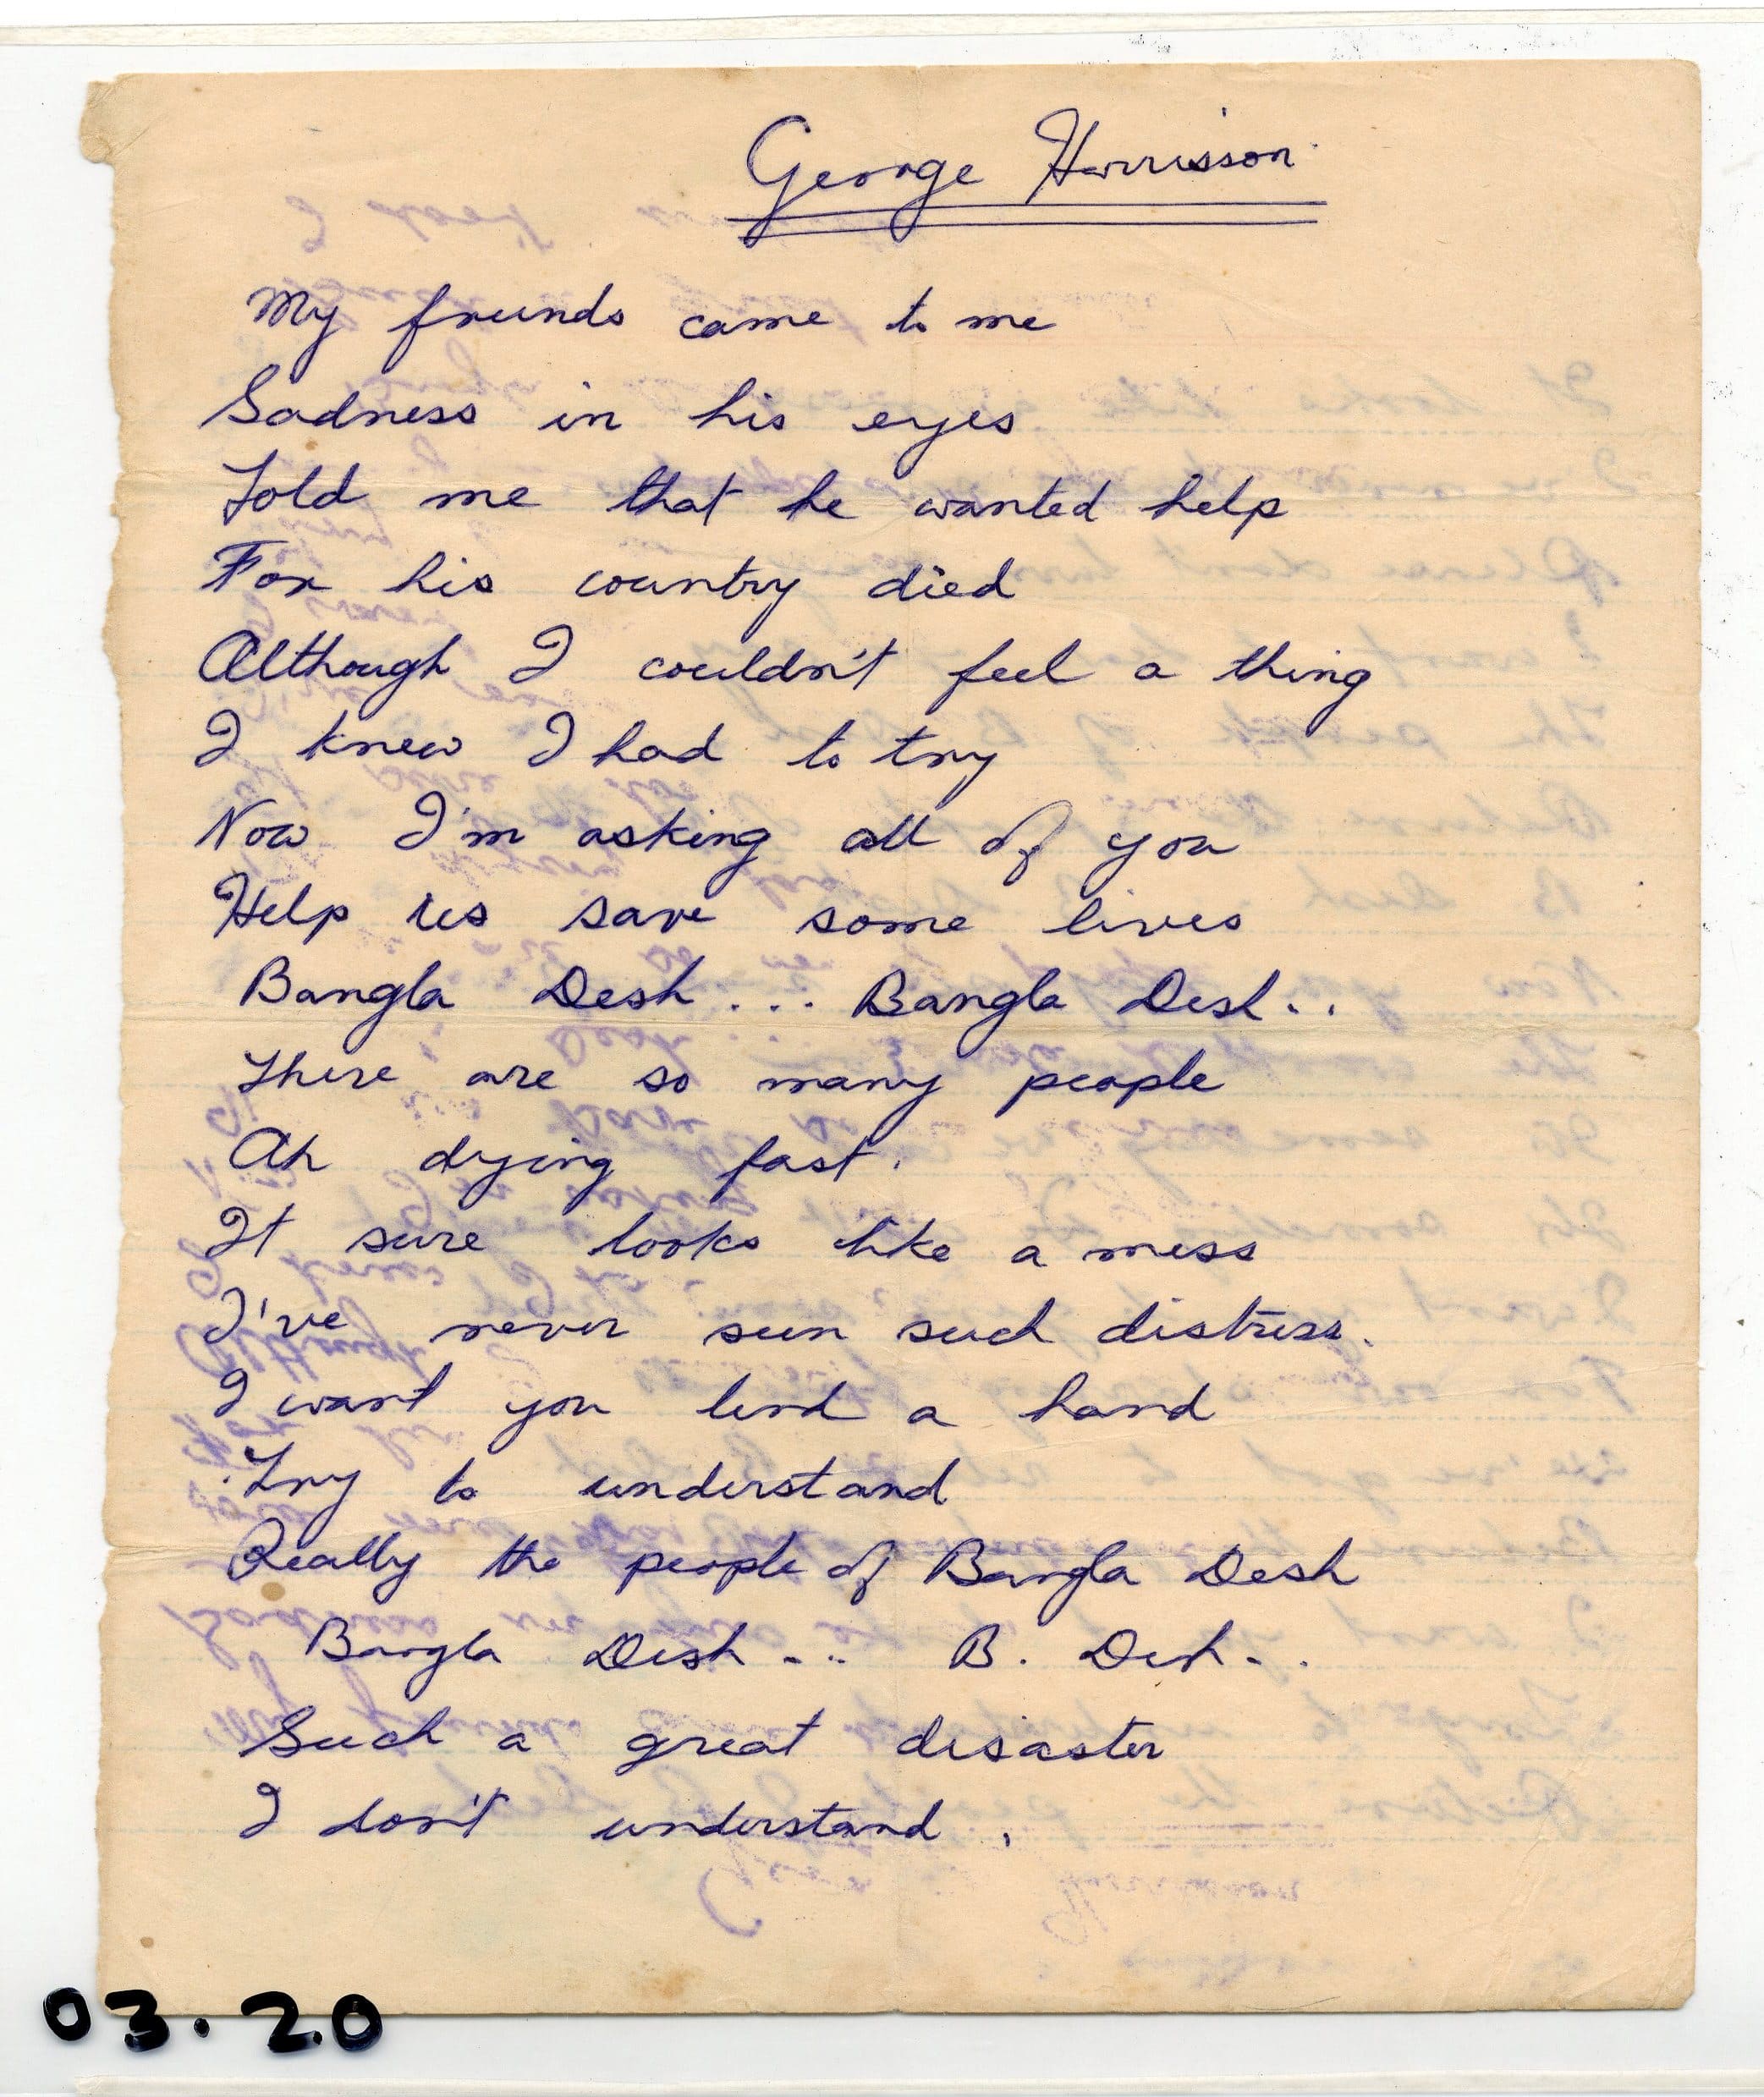 George Harrisson
My friends came to me
Sadness in his eyes
Told me that he wanted help
For his country died
Although I couldn't feel a thing
I knew I had to try
Now I'm asking all of you
Help us save some lives
Bangla Desh ... Bangla Desh..
There are so many people
Ah dying fast.
It sure looks like a mess
I've never seen such distress.
I want you lend a hand
Try to understand
Really the people of Bangla Desh
Bangla Desh ... B. Desh..
Such a great disaster
I don't understand.
03.20